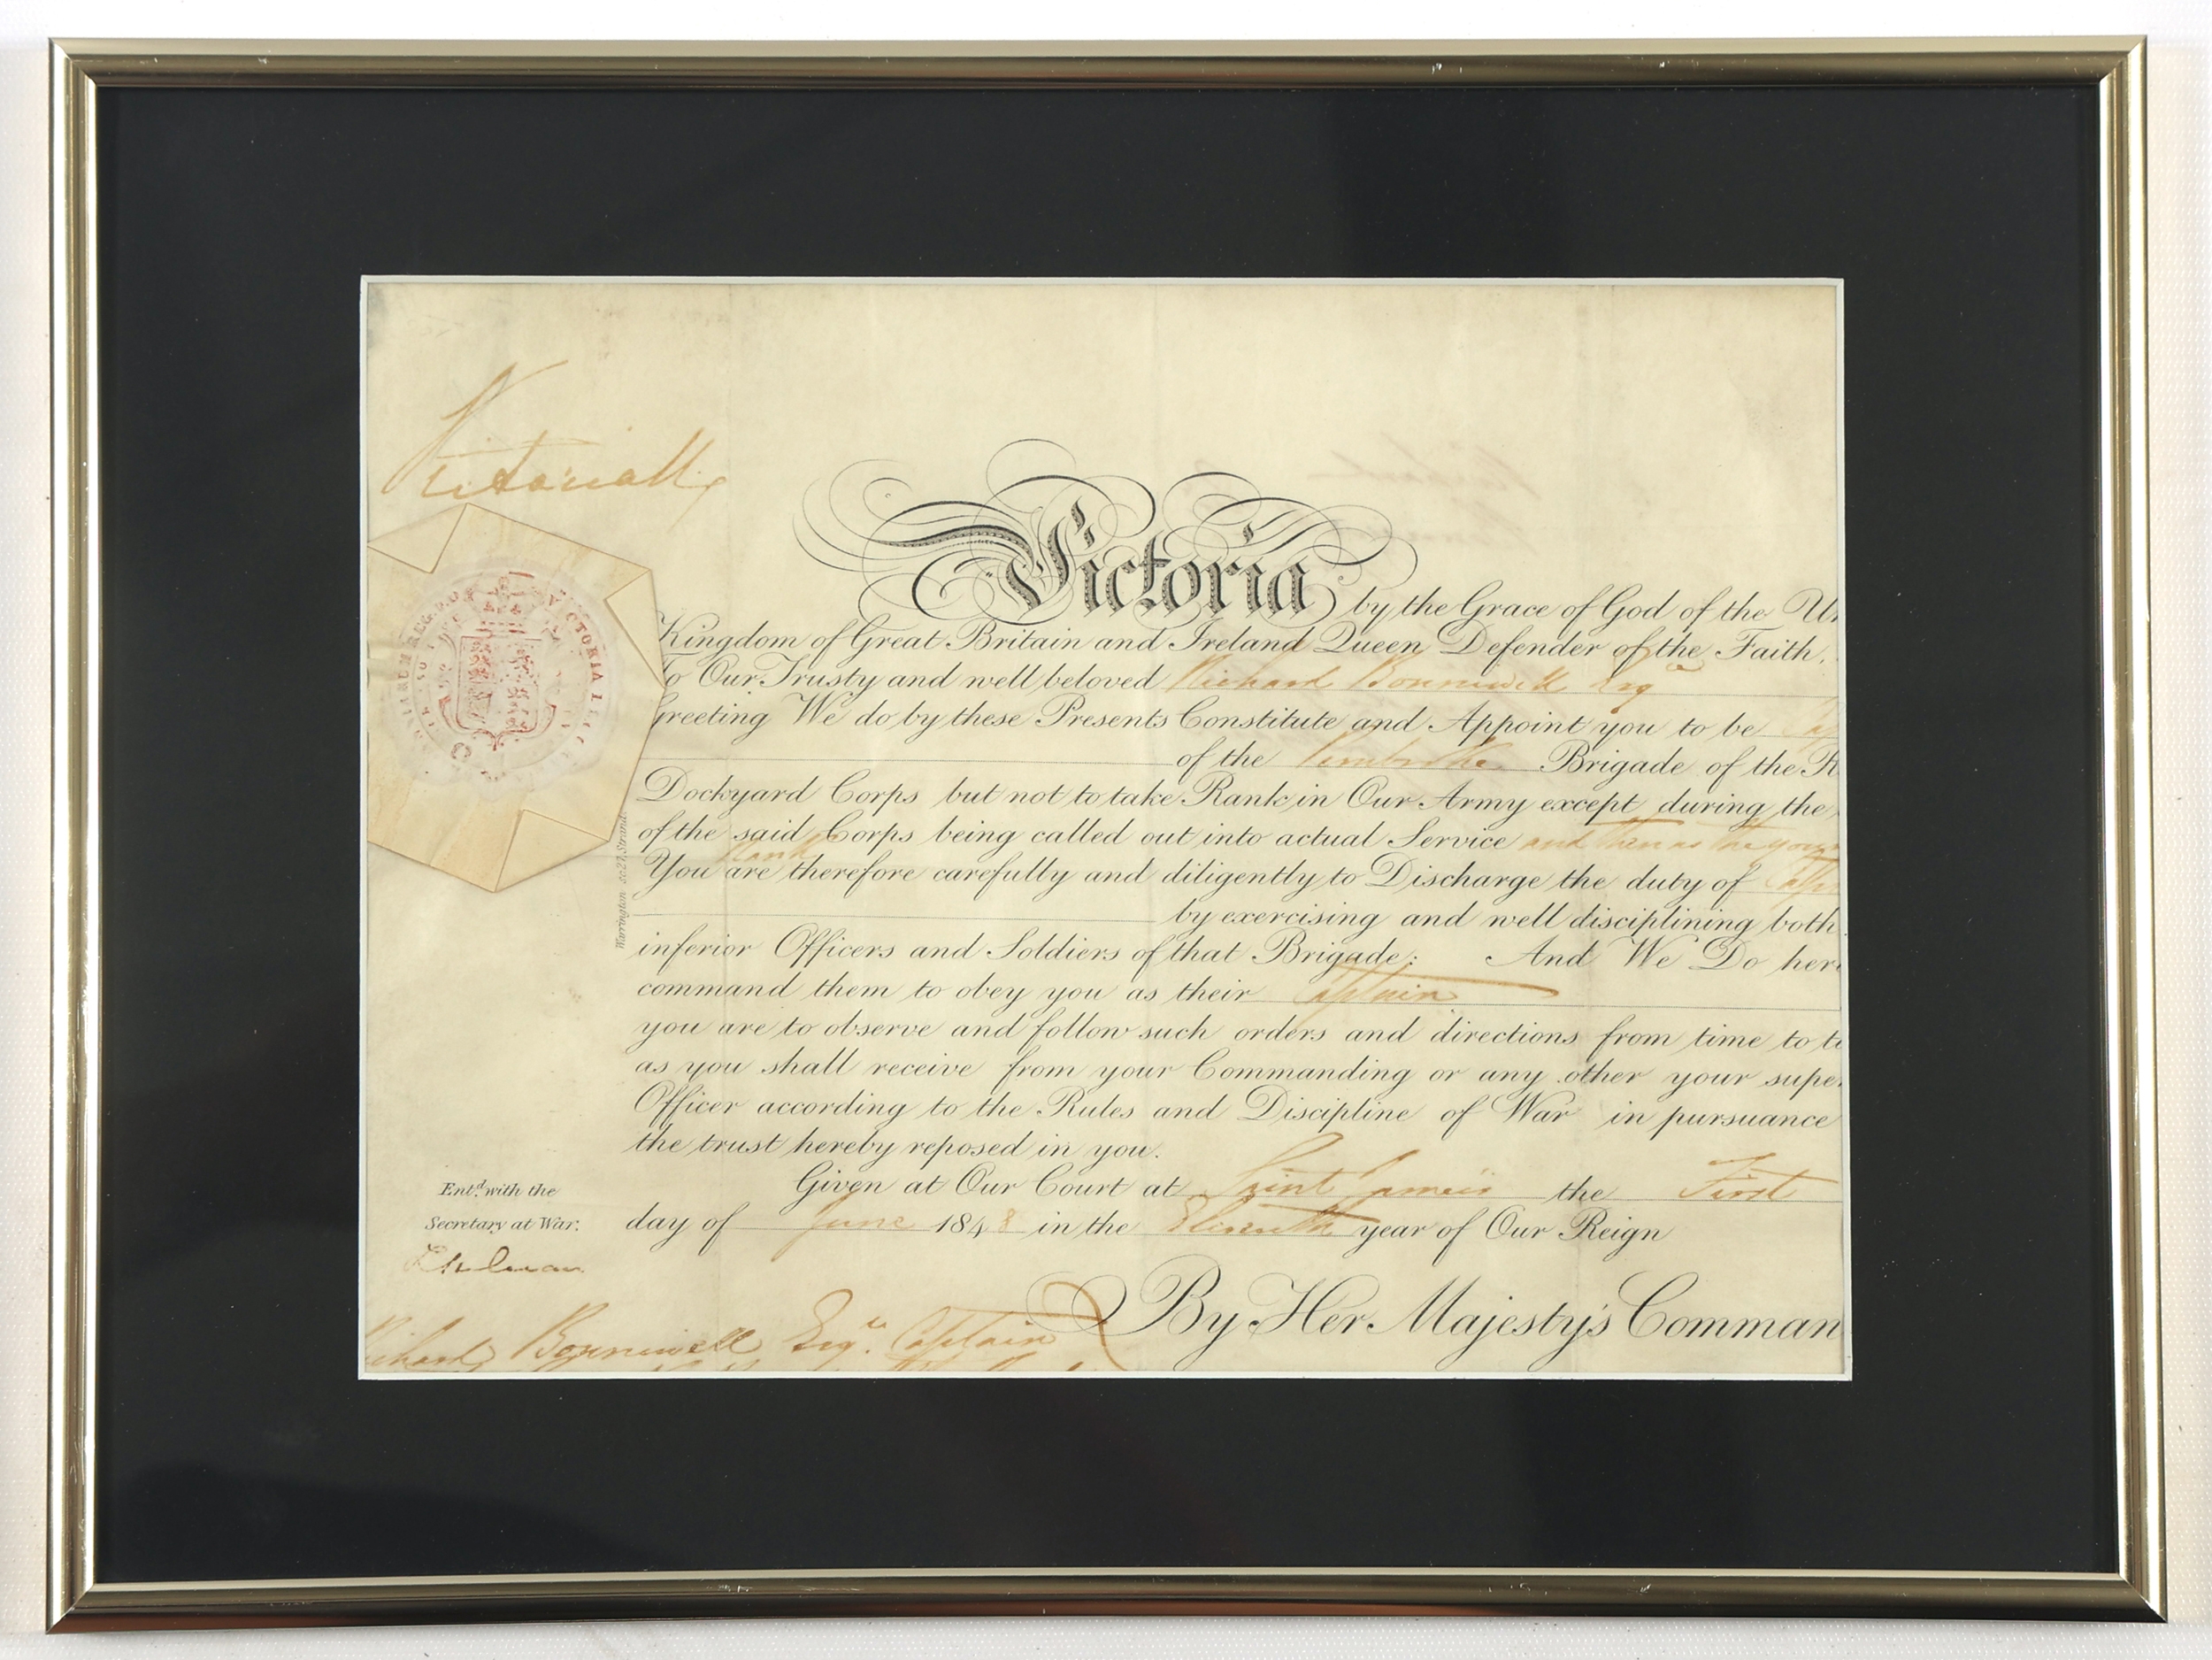 Victoria R
Victoria by the Grace of God of the Un
Kingdom of Great Britain and Ireland Queen Defender of the Faith,
To Our Trusty and well beloved Richard Bonniwell Esqre
Greeting We do by these Presents Constitute and Appoint you to be
of the Pembroke Brigade of the R
Dockyard Corps but not to take Rank in Our Army except during the
of the said Corps being called out into actual Service and then as the youn
Rank
You are therefore carefully and diligently to Discharge the duty of Captai
by exercising and well disciplining both
inferior Officers and Soldiers of that Brigade: And We Do her
command them to obey you as their Captain
you are to observe and follow such orders and directions from time to ti
as you shall receive from your Commanding or any other your super
Officer according to the Rules and Discipline of War in pursuance
the trust hereby reposed in you.
Given at Our Court at Saint James's the First
day of June 1848 in the Eleventh year of Our Reign
By Her Majesty's Comman
VICTORIA
Warrington sc. 27, Strand
Entd. with the
Secretary at War.
Richard Bonniwell Esqre. Captain